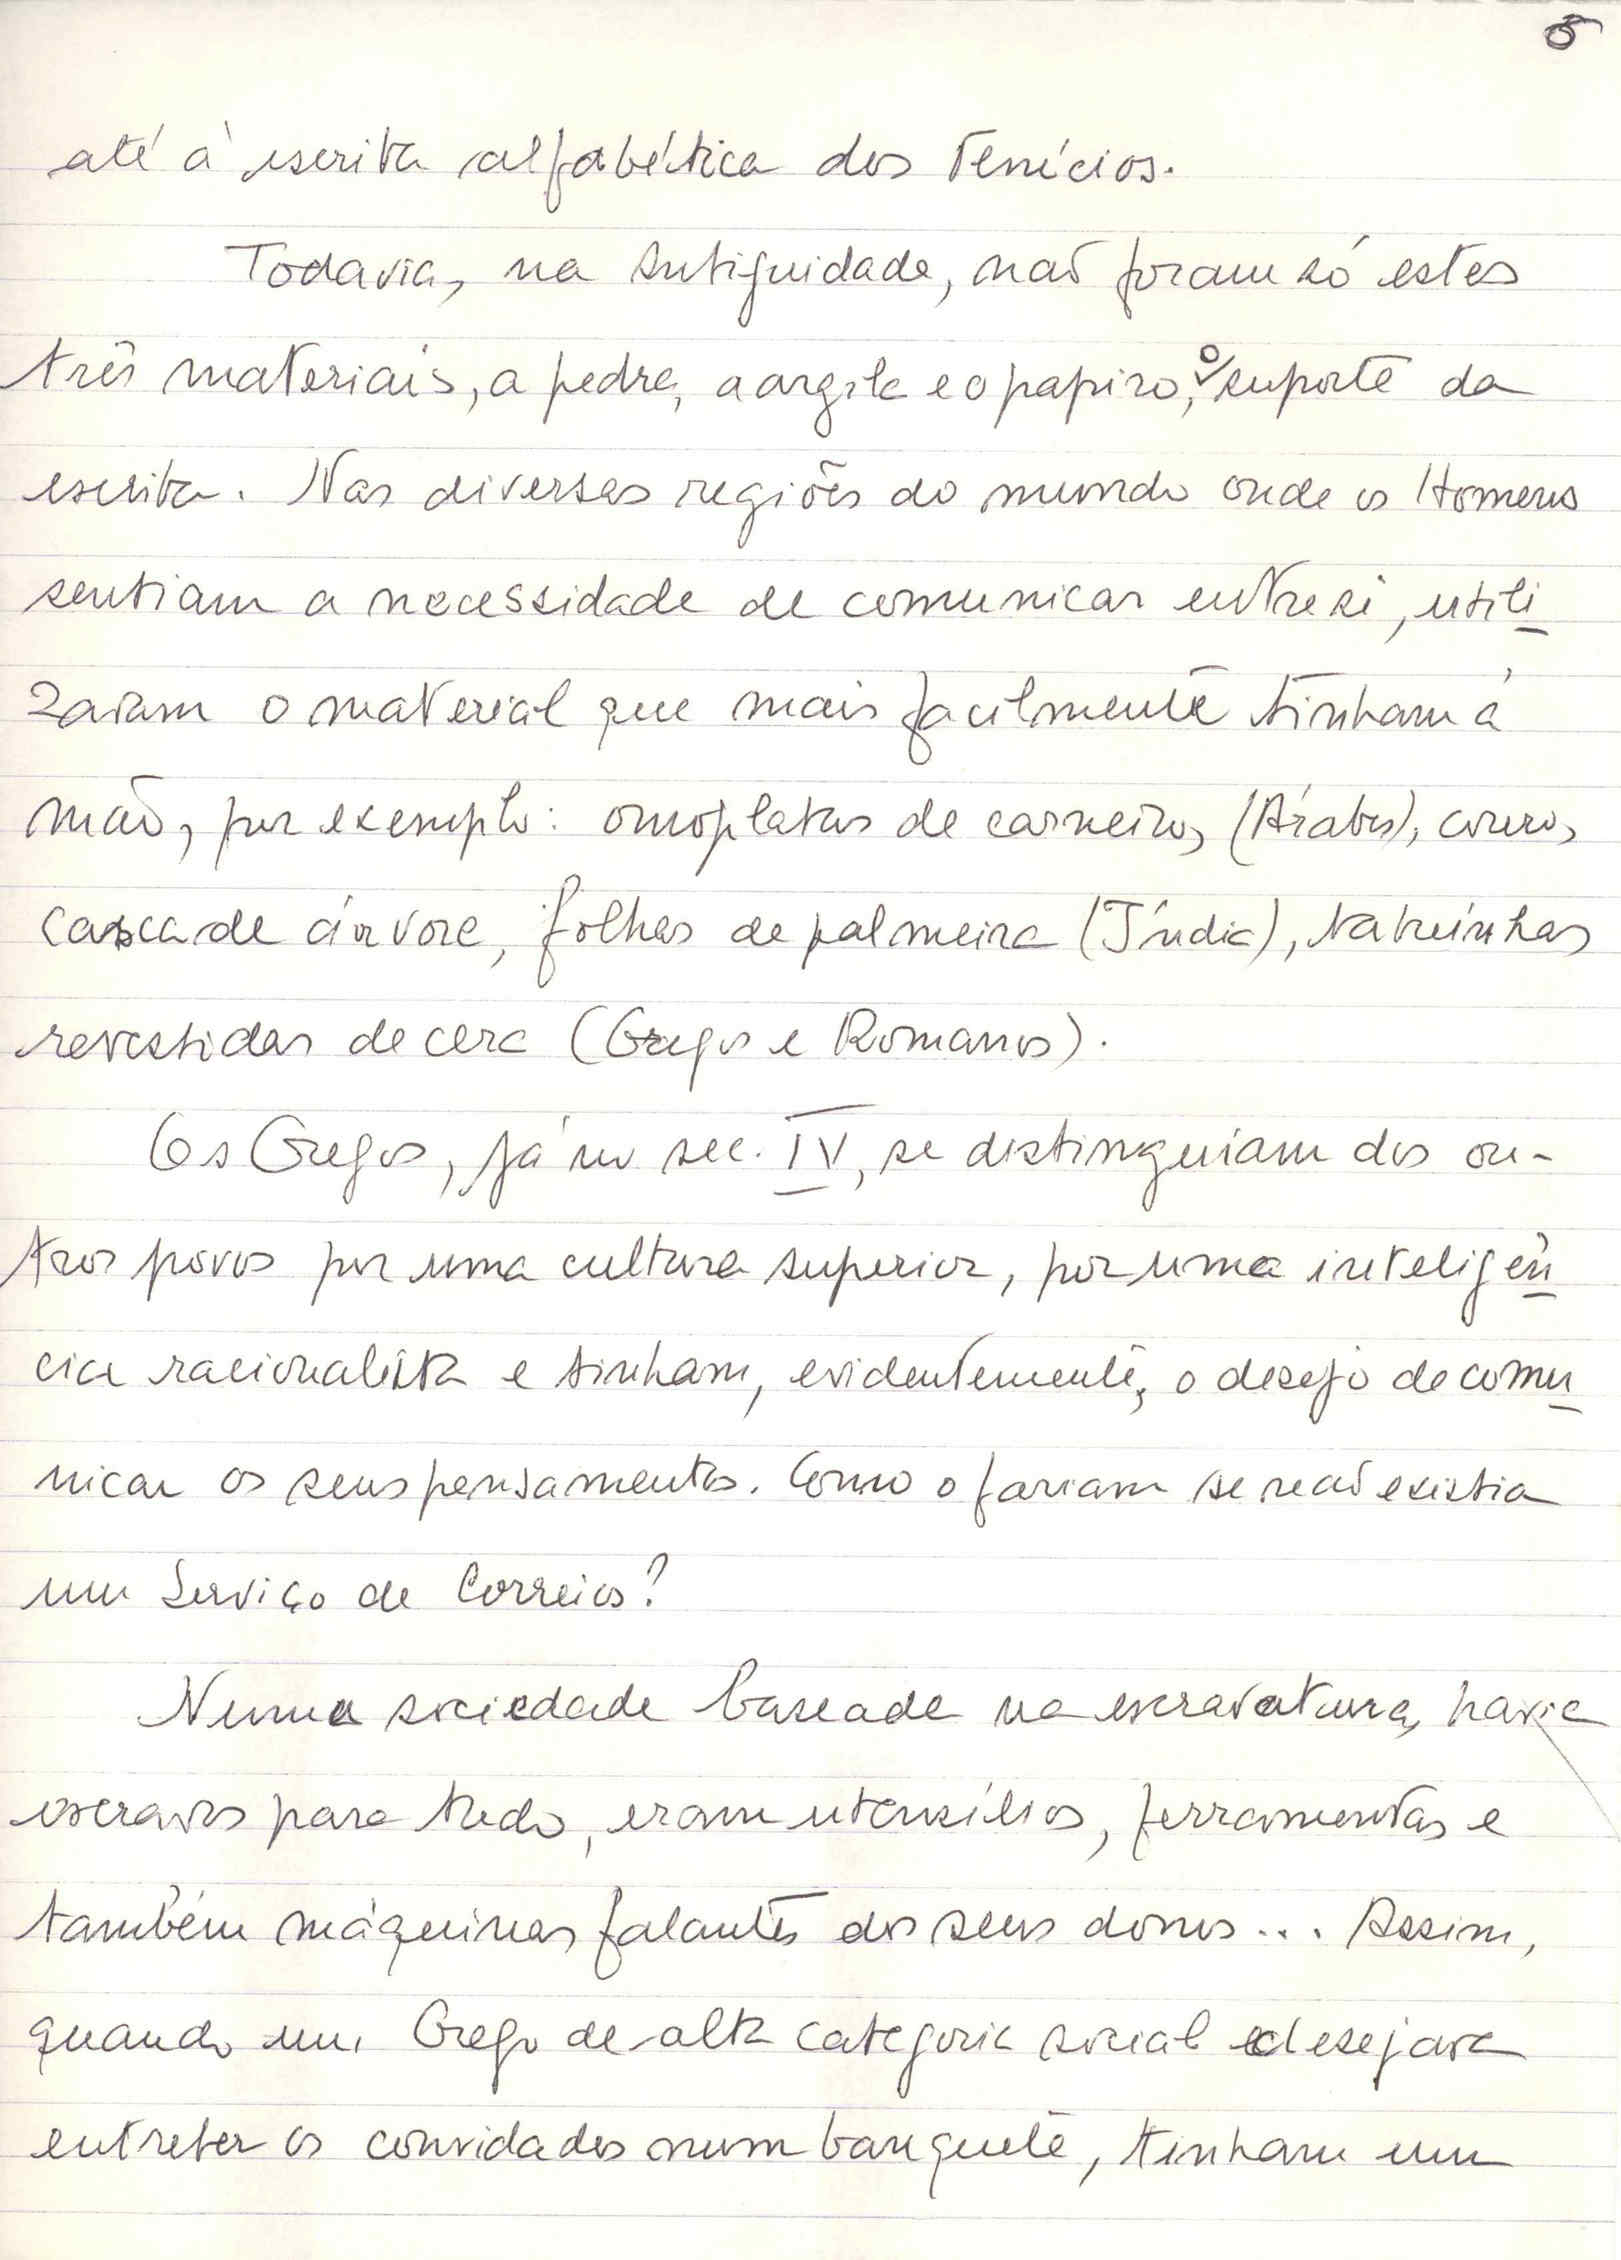 5
até à escrita alfabética dos Fenícios.
Todavia, na Antiguidade, não foram só estes
três materiais, a pedra, a argila e o papiro, o suporte da
escrita. Nas diversas regiões do mundo onde os Homens
sentiam a necessidade de comunicar entre si, utili
zavam o material que mais facilmente tinham à
mão, por exemplo: omoplatas de carneiros (Árabes), couros,
casca de árvore, folhas de palmeira (Índia), tabuinhas
revestidas de cera (Gregos e Romanos).
Os Gregos, já no séc. IV, se distinguiam dos ou-
tros povos por uma cultura superior, por uma inteligên
cia racionalista e tinham, evidentemente, o desejo de comu
nicar os seus pensamentos. Como o fariam se não existia
um Serviço de Correios?
Numa sociedade baseada na escravatura, havia
escravos para tudo, eram utensílios, ferramentas e
também máquinas falantes dos seus donos... Assim,
quando um Grego de alta categoria social desejava
entreter os convidados num banquete, tinham um